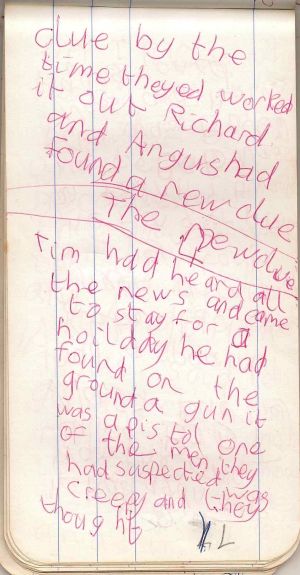 clue by the
time theyed worked
it out Richard
and Angus had
found a new clue
The new clue
Tim had heard all
the news and came
to stay for a
hoilday he had
found on the
ground a gun it
was a pistol one
of the men they
had suspected was
creepy and (they
though